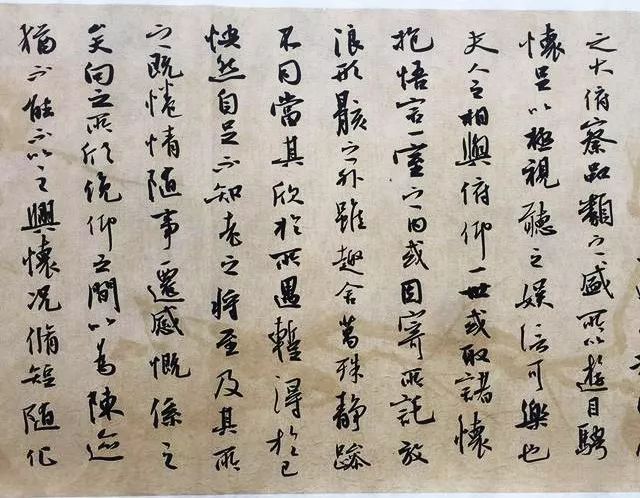 之大俯察品類之盛所以遊目騁
懷足以極視聽之娛信可樂也
夫人之相與俯仰一世或取諸懷
抱悟言一室之內或因寄所託放
浪形骸之外雖趣舍萬殊靜躁
不同當其欣於所遇暫得於己
怏然自足不知老之將至及其所
之既惓情隨事遷感慨係之
矣向之所欣俛仰之間以為陳迹
猶不能不以之興懷況脩短隨化